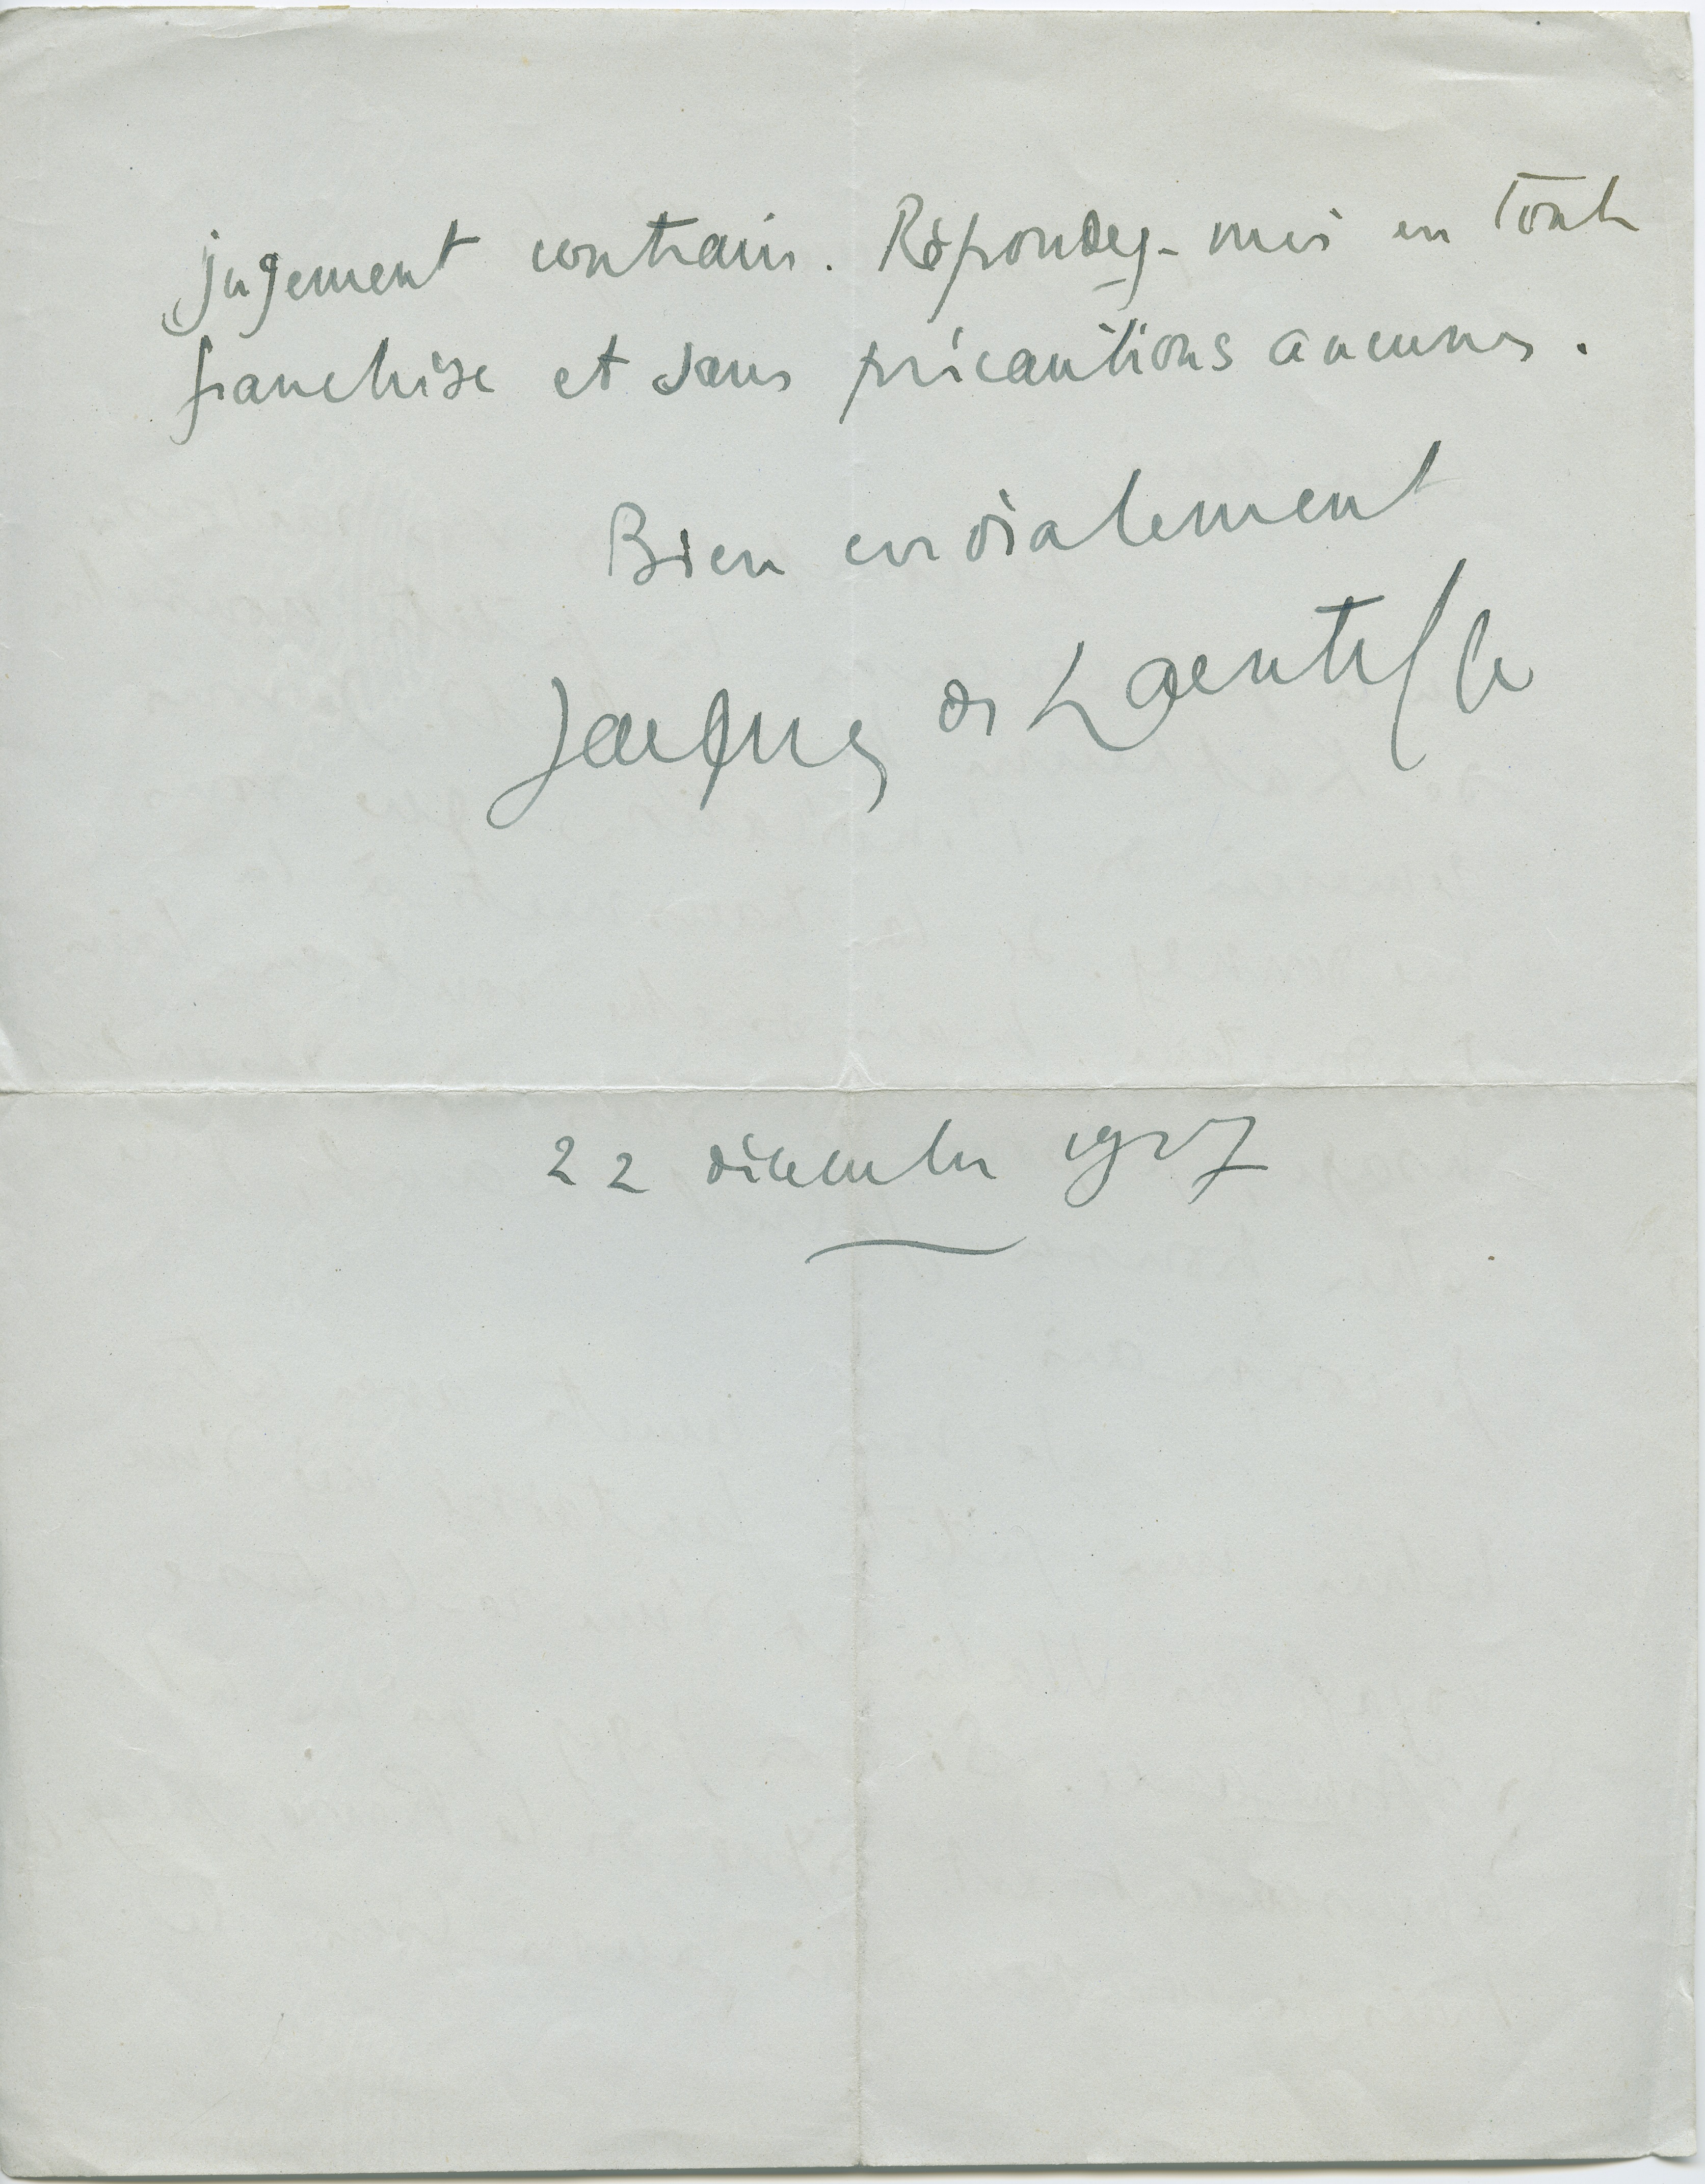 jugement contraire. Répondez-moi en toute
franchise et sans précautions aucunes.
Bien cordialement
Jacques de Lacretelle
22 décembre 1927